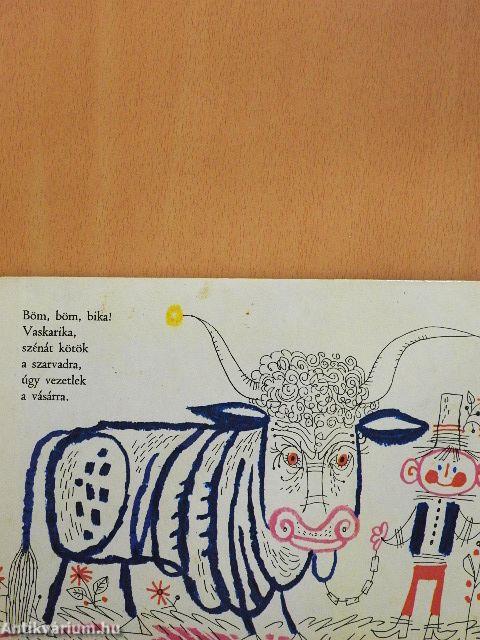 Böm, böm, bika!
Vaskarika,
szénát kötök
a szarvadra,
úgy vezetlek
a vásárra.
Antikvárium.hu